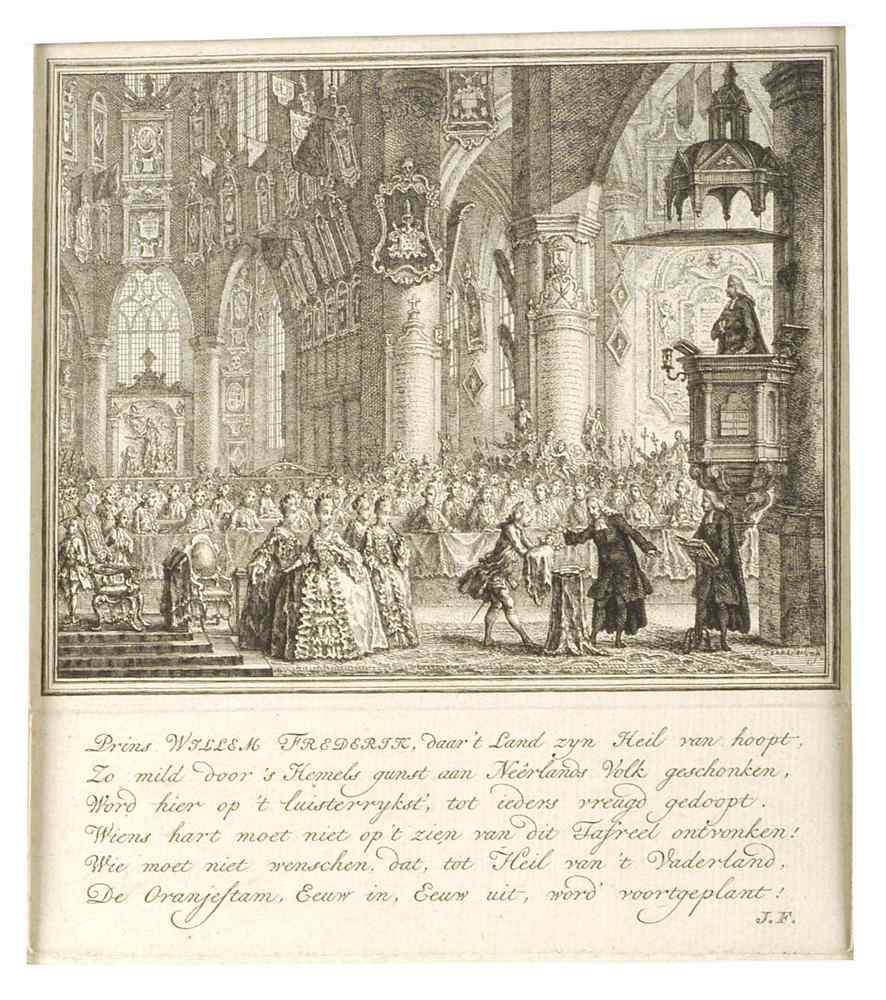 Prins WILLEM FREDERIK, daar't Land zyn Heil van hoopt,
Zo mild door 's Hemels gunst aan Neêrlands Volk geschonken,
Word hier op 't luisterrykst', tot ieders vreugd gedoopt.
Wiens hart moet niet op't zien van dit Tafreel ontvonken!
Wie moet niet wenschen, dat, tot Heil van 't Vaderland,
De Oranjeſtam, Eeuw in, Eeuw uit, word' voortgeplant!
J.F.